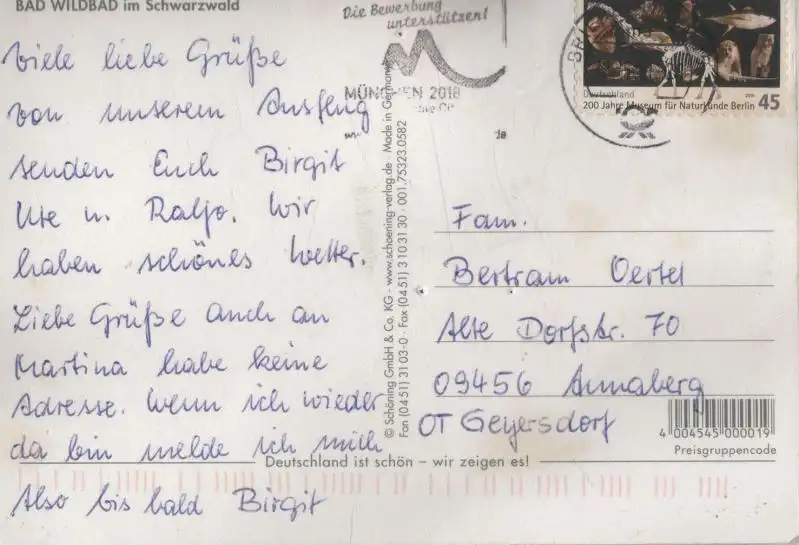 BAD WILDBAD im Schwarzwald
Viele liebe Grüße
von unserem Ausfeug
senden Euch Birgit
Ute u. Ralfo. Wir
haben schönes Wetter.
Liebe Grüße auch an
Martina habe keine
Adresse. Wenn ich wieder
da bin melde ich mich
Also bis bald Birgit
Die Bewerbung
unterstützen!
MÜNCHEN 2018
© Schöning GmbH & Co. KG · www.schoening-verlag.de · Made in Germany
Fon (0451) 31 03-0 · Fax (0451) 310 31 30 · 001.75323.0582
Deutschland
200 Jahre Museum für Naturkunde Berlin 45
Fam.
Bertram Oertel
Alte Dorfstr. 70
09456 Annaberg
OT Geyersdorf
4 004545 000019
Preisgruppencode
Deutschland ist schön – wir zeigen es!